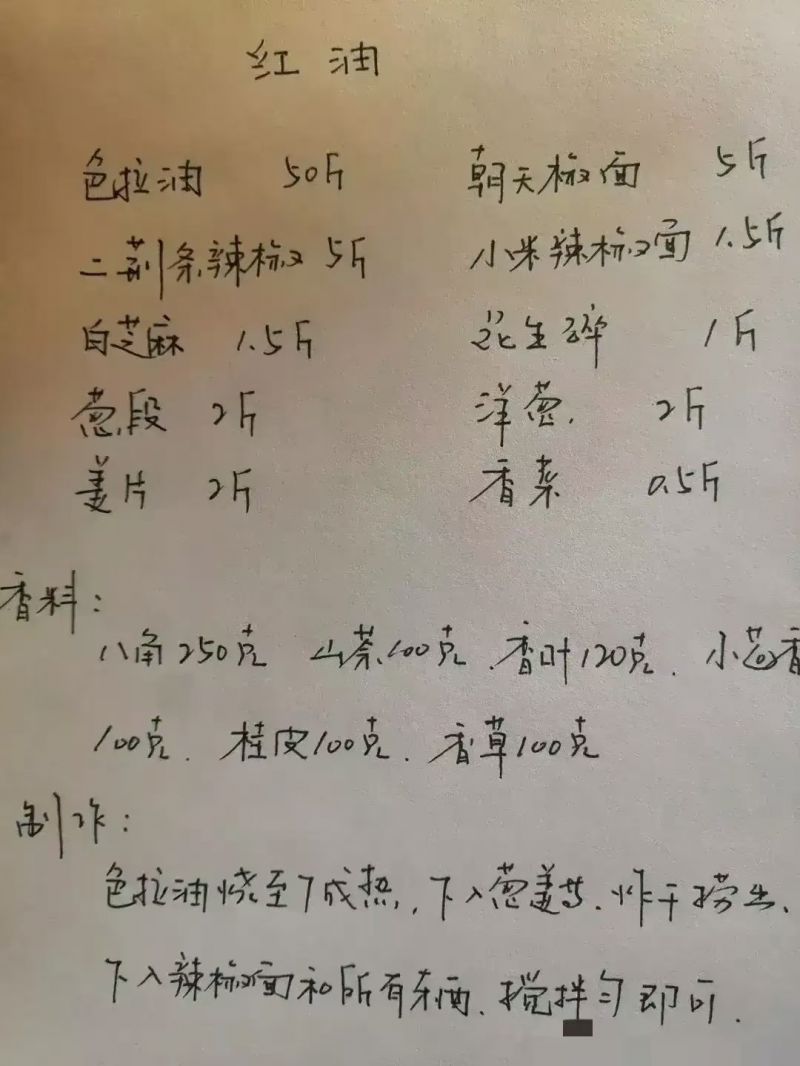 红油
色拉油 50斤 朝天椒面 5斤
二荆条辣椒 5斤 小米辣椒面 1.5斤
白芝麻 1.5斤 花生碎 1斤
葱段 2斤 洋葱. 2斤
姜片 2斤 香菜 0.5斤
香料:
八角250克 山萘100克.香叶120克.小茴香
100克.桂皮100克.香草100克
制作:
色拉油烧至7成热,下入葱姜等.炸干捞出.
下入辣椒面和所有东西.搅拌匀即可.